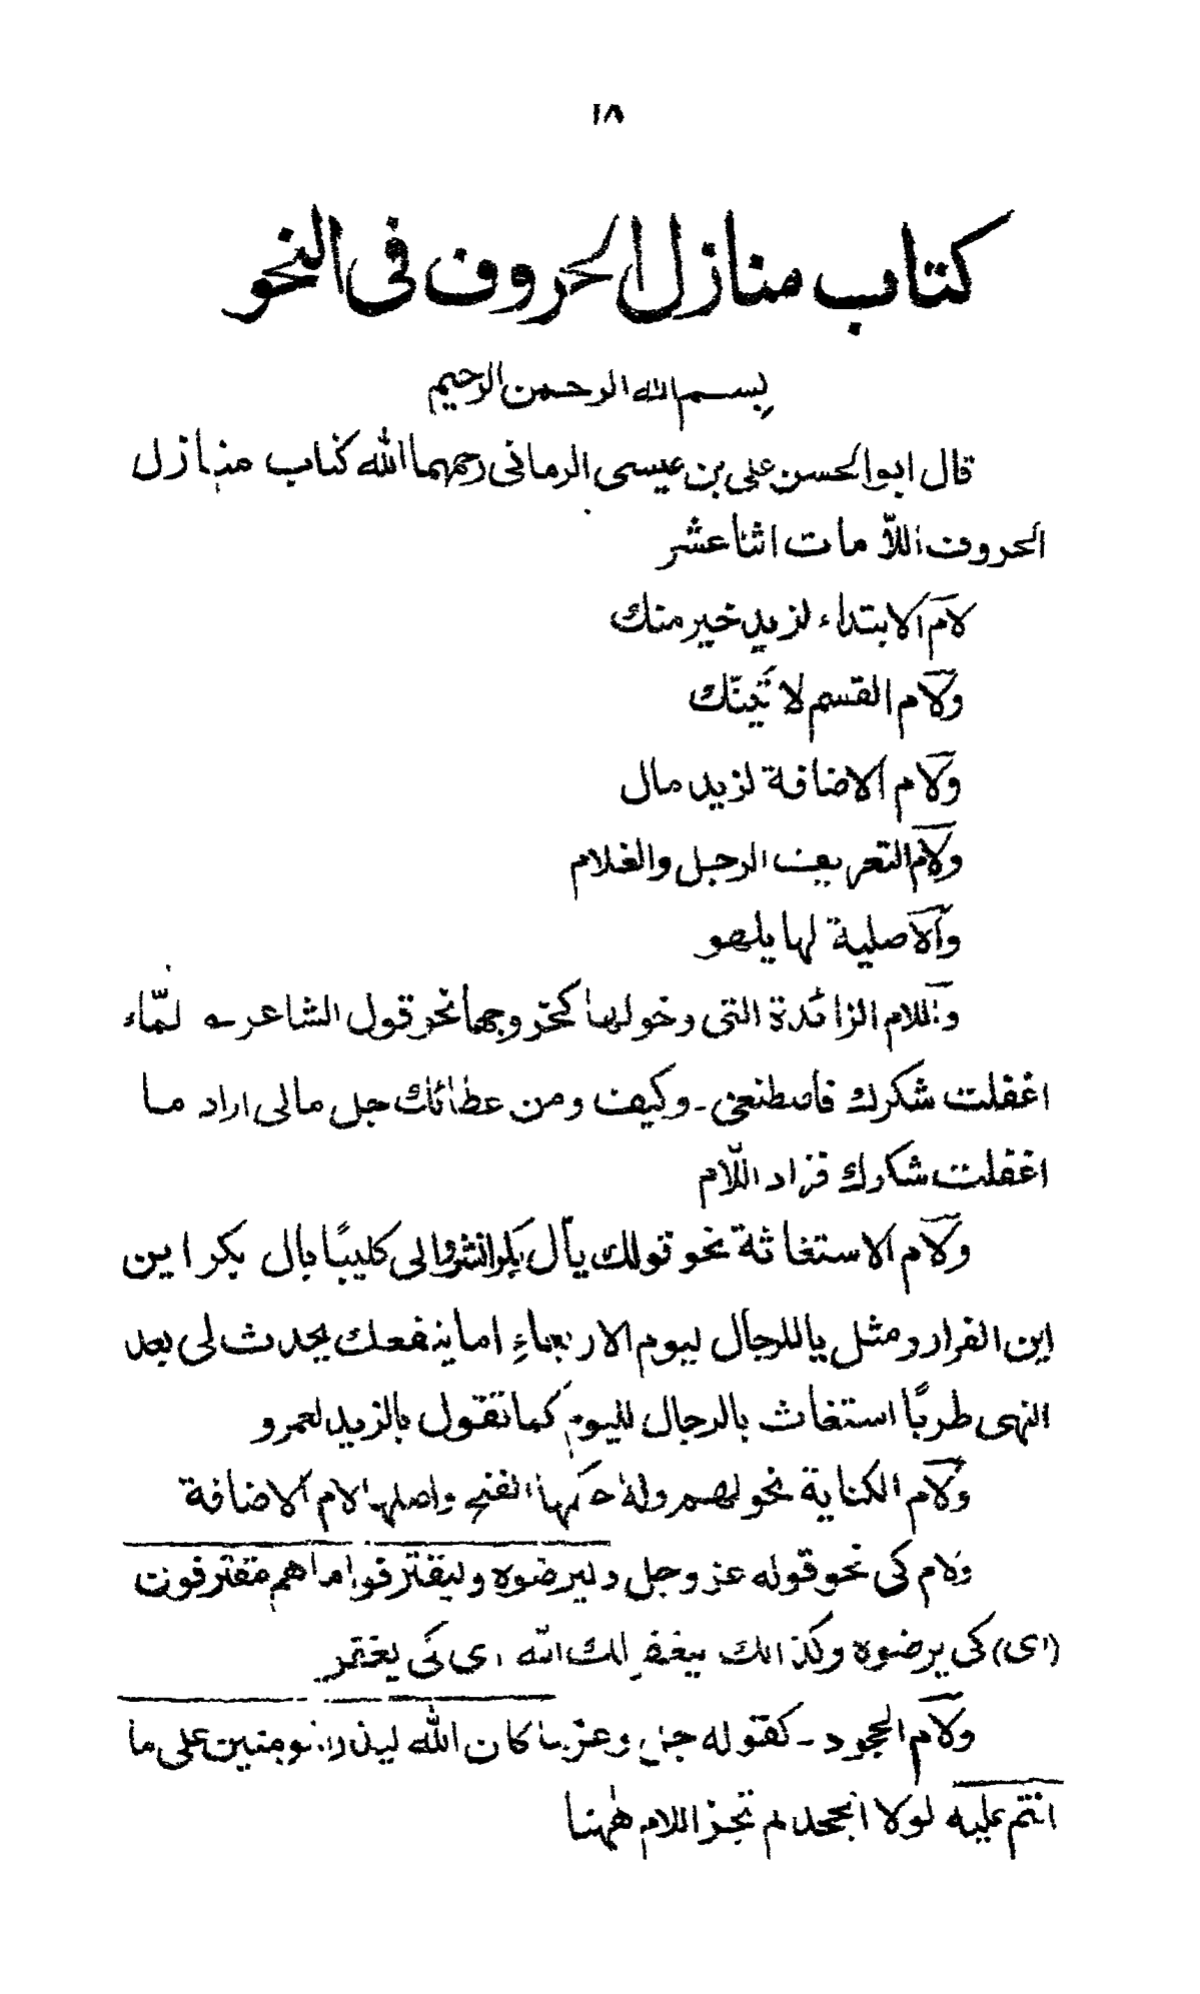 ١٨
كتاب منازل الحروف في النحو
بسم الله الرحمن الرحيم
قال ابو الحسن علي بن عيسى الرماني رحمهما الله كتاب منازل
الحروف اللّا مات اثنا عشر
لام الابتداء لزيد خير منك
ولام القسم لا تينّك
ولام الاضافة لزيد مال
ولام التعريف الرجل والغلام
والاصلية لها يلهو
واللام الزائدة التي دخولها كخروجها نحو قول الشاعر لمّاء
اغفلت شكرك فاصطنعني - وكيف ومن عطائك جل مالي اراد ما
اغفلت شكرك فزاد اللّام
ولام الاستغاثة نحو قولك يآل بكر انشروا لي كليبًا يال بكر اين
اين الفرار ومثل ياللرجال ليوم الاربعاءِ اما ينفعك يحدث لي بعد
النهى طربًا استغاث بالرجال لليوم كما تقول بالزيد لعمرو
ولام الكناية نحو لهم وله حكمها الفتح واصلها لام الاضافة
ولام كي نحو قوله عز وجل وليرضوه وليقترفوا ما هم مقترفون
(اى) كي يرضوه وكذالك ليغفر لك الله اى كَي يغفر
ولام الجحود - كقوله جل وعز ما كان الله ليذر المومنين على ما
انتم عليه لولا الجحد لم تجز اللام ههنا